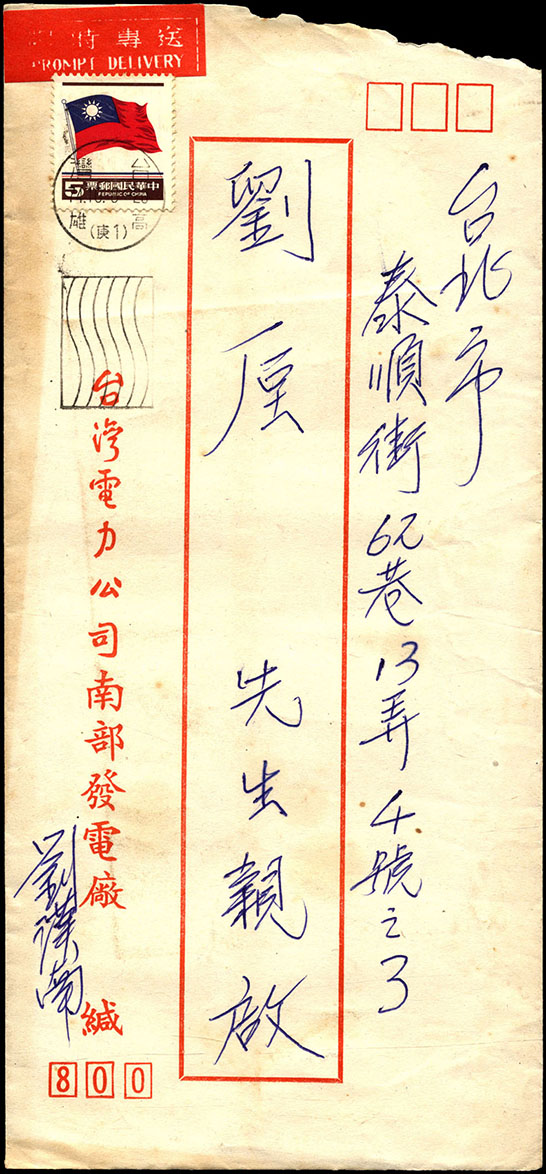 時專送
PROMPT DELIVERY
中華民國郵票
REPUBLIC OF CHINA
台灣
高雄
(庚1)
台北市
泰順街62巷13弄4號之3
劉厘 先生親啟
台灣電力公司南部發電廠 緘
劉漢南
800